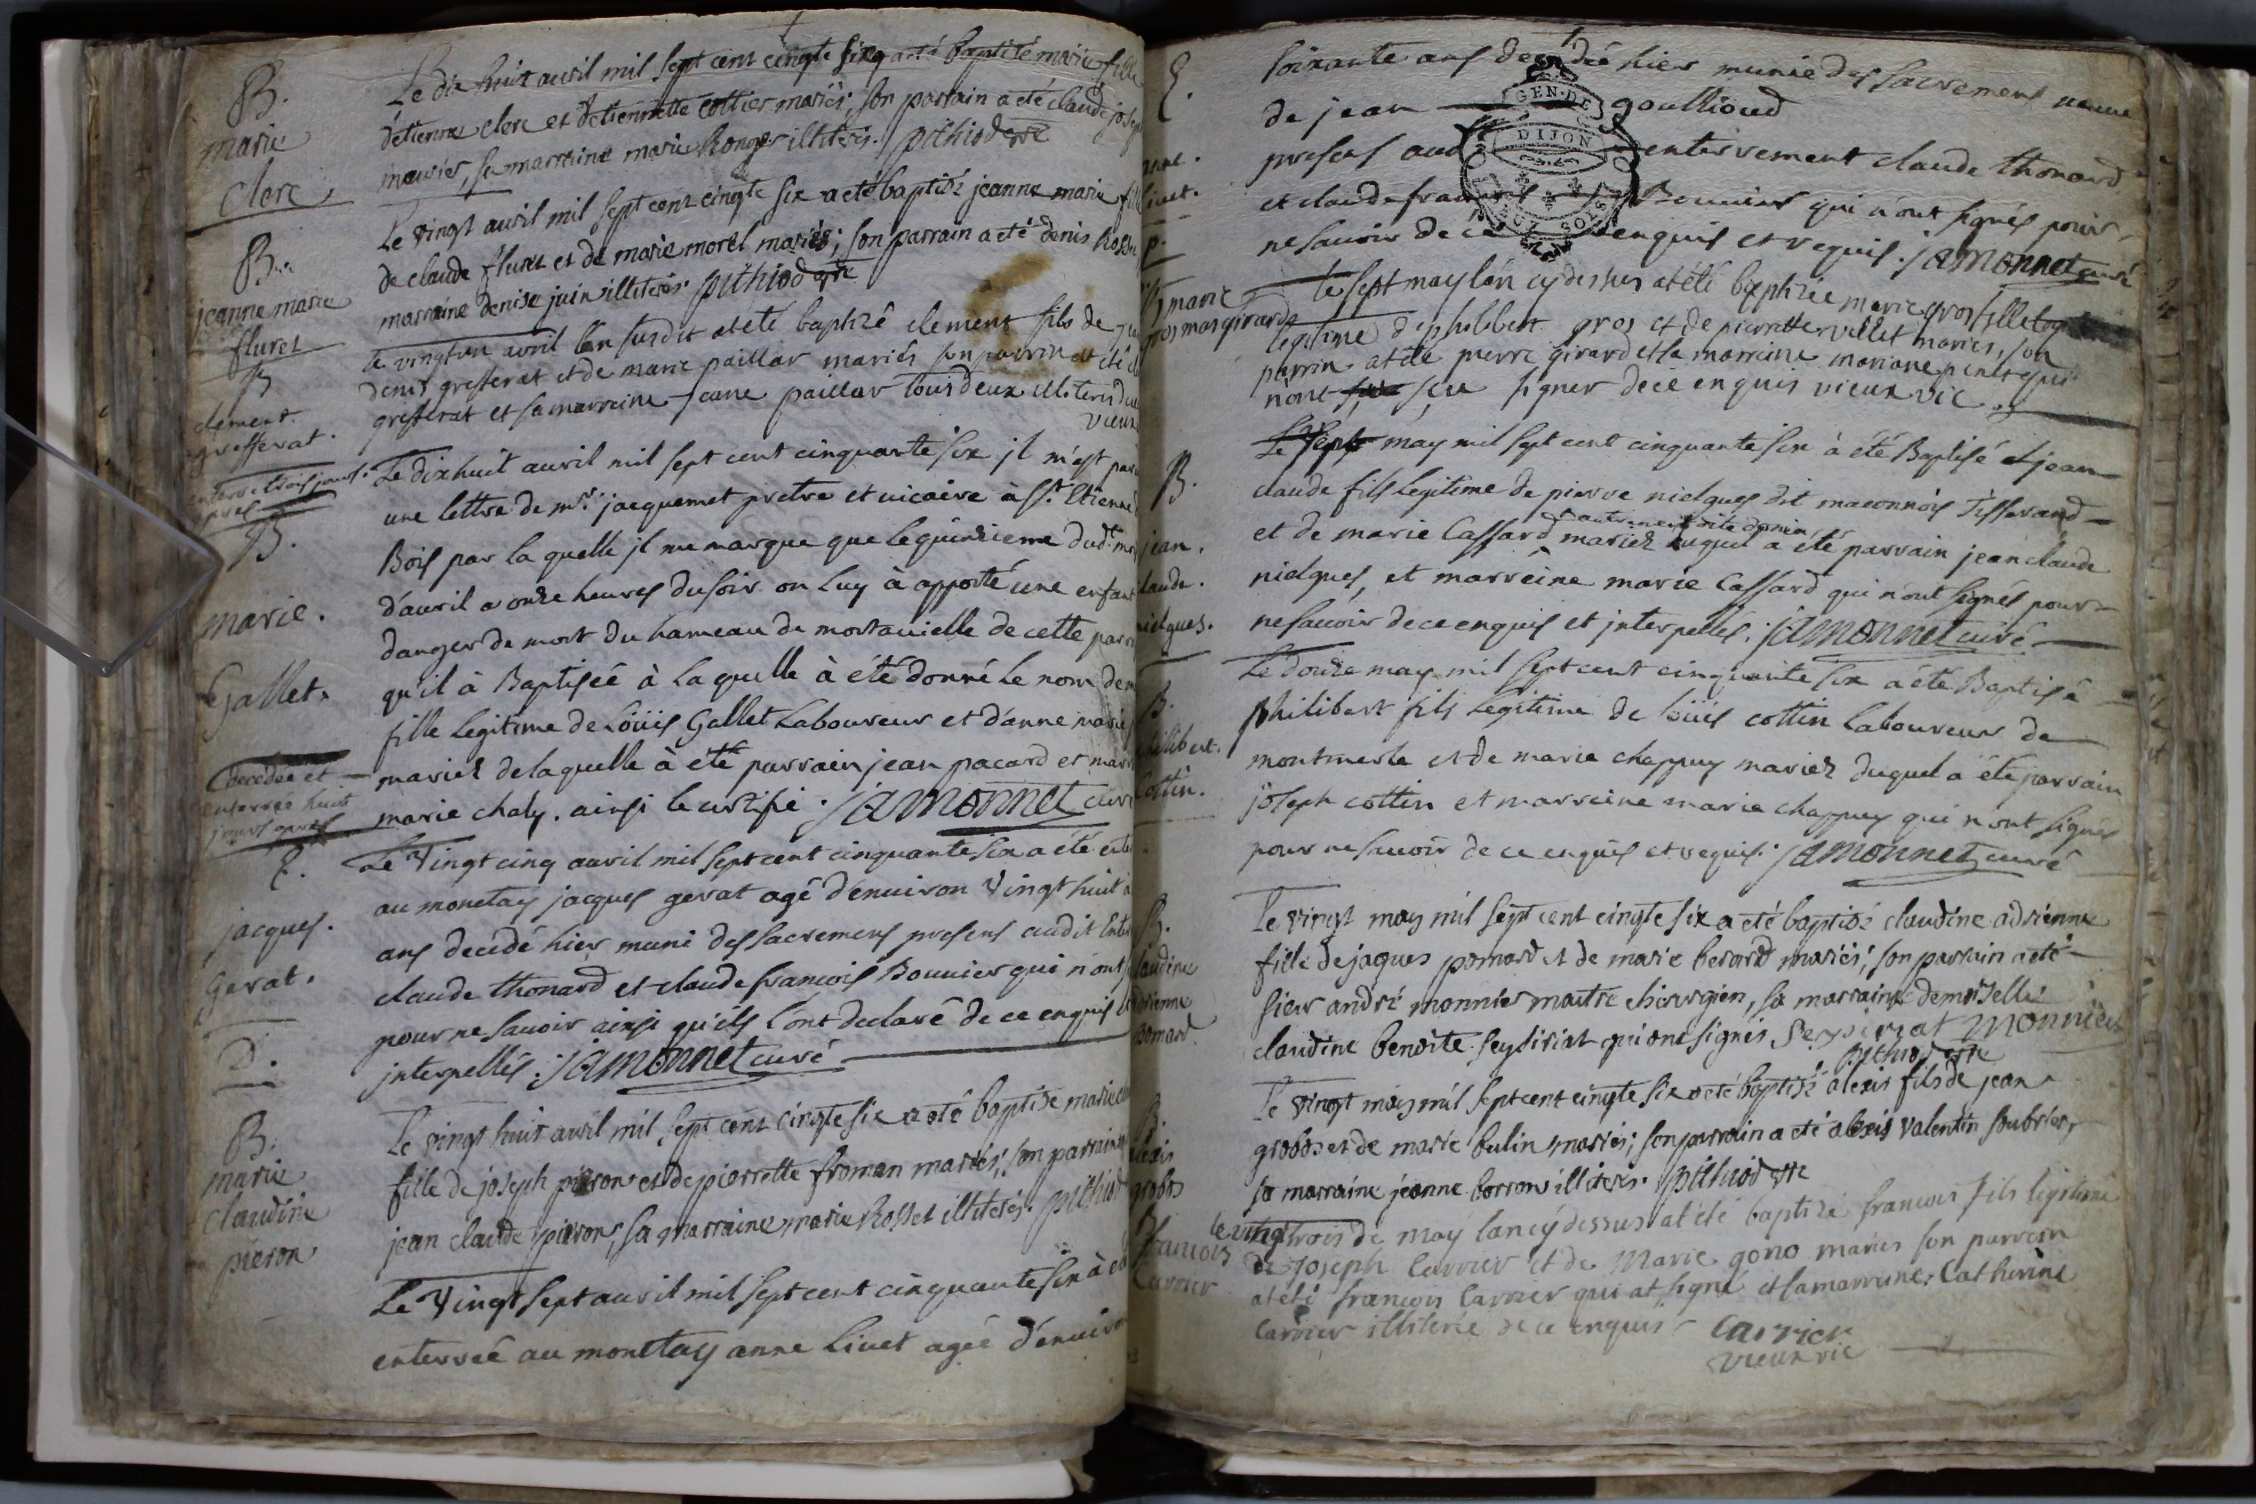 B.
marie
Clerc
Le dix huit avril mil sept cent cinqte six a été baptisé marie fille
d'etienne clerc et d'etiennette cottier mariés; son parrain a été claude joseph
meunier, sa marraine marie Ronger illiterés. pithiod vre
B.
jeanne marie
fluret
Le vingt avril mil sept cent cinqte six a été baptisé jeanne marie
de claude fluret et de marie morel mariés; son parrain a été denis
marraine denise juin illiterés. pithiod vre
B
clement
grefferat.
enterré trois jours
apres
le vingtun avril lan susdit at été baptizé clement fils de
denis grefferat et de marie paillar mariés son parrin at été
grefferat et sa marreine jeane paillar tous deux illiterés
vieux
B.
marie.
Gallet.
decedée et
enterrée huit
jours après
Le dixhuit avril mil sept cent cinquante six jl m'est
une lettre de mr. jacquemet pretre et vicaire à St. Etienne
Bois par la quelle jl me marque que le quinzieme dudt.
d'avril a onze heures du soir on luy à apporté une enfant
danger de mort du hameau de mortavielle de cette
qu'il à Baptisée à la quelle à été donné le nom de
fille legitime de Loüis Gallet Laboureur et d'anne marie
mariez de laquelle à été parrain jean pacard et
marie chaly. ainsi le certifie. jamonnet curé
E.
jacques.
gerat.
D.
Le Vingt cinq avril mil sept cent cinquante six a été
au monetay jacques gerat agé d'environ Vingt huit
ans decedé hier muni des sacremens presens audit
claude thonard et claude francois Bouvier qui n'ont
pour ne savoir ainsi qu'ils l'ont declaré de ce enquis
jnterpellés. jamonnet curé
B.
marie
claudine
pieron
Le vingt huit avril mil sept cent cinqte six a été baptisé marie
fille de joseph pieron et de pierrette froman mariés; son parrain
jean claude pieron, sa marraine marie Rosset illiterés. pithiod
Le Vingt sept avril mil sept cent cinquante six à
enterrée au monetay anne Livet agée d'environ
E.
soixante ans decedée hier munie des sacremens veuve
de jean goullioud
presens enterrement claude thonard
et claude francois Bouvier qui n'ont signés pour
ne savoir de ce enquis et requis. jamonnet curé
marie
gros
le sept may lan cy dessus at été baptizée marie gros fille
legitime de philibert gros et de pierrette villet maries, son
parrin at été pierre girard et la marreine mariane
n'ont sçu signer de ce enquis vieux vic
B.
jean.
claude.
nielques.
Le sept may mil sept cent cinquante six à été Baptisé jean
claude fils legitime de pierre nielques dit maconnois Tisserand
et de marie Cassard mariez duquel a été parrain jean claude
nielques, et marreine marie Cassard qui n'ont signés pour
ne savoir de ce enquis et jnterpellés. jamonnet curé
B.
philibert.
Cottin.
Le douze may mil sept cent cinquante six a été Baptisé
philibert fils legitime de loüis cottin laboureur de
montmerle et de marie chappuy mariez duquel a été parrain
joseph cottin et marreine marie chappuy qui n'ont signés
pour ne savoir de ce enquis et requis. jamonnet curé
B.
claudine
adrienne
pomard
Le vingt may mil sept cent cinqte six a été baptisé claudine adrienne
fille de jaques pomard et de marie berard mariés; son parrain a été
sieur andré monnier maitre chirurgien, sa marraine demoiselle
claudine benoite seyvirat qui ont signés. Seyvirat Monnier
pithiod vre
B.
alexis
grobos
Le vingt may mil sept cent cinqte six a été baptisé alexis fils de jean
grobos et de marie bulin mariés; son parrain a été alexis valentin soubrier,
sa marraine jeanne borron illiterés. pithiod vre
B
francois
Carrier
le vingttrois de may lan cy dessus at été baptizé francois fils legitime
de Joseph Carrier et de Marie gono maries son parrein
at été francois Carrier qui at signé et sa marreine Catherine
Carrier illiterée de ce enquis Carrier
vieux vic